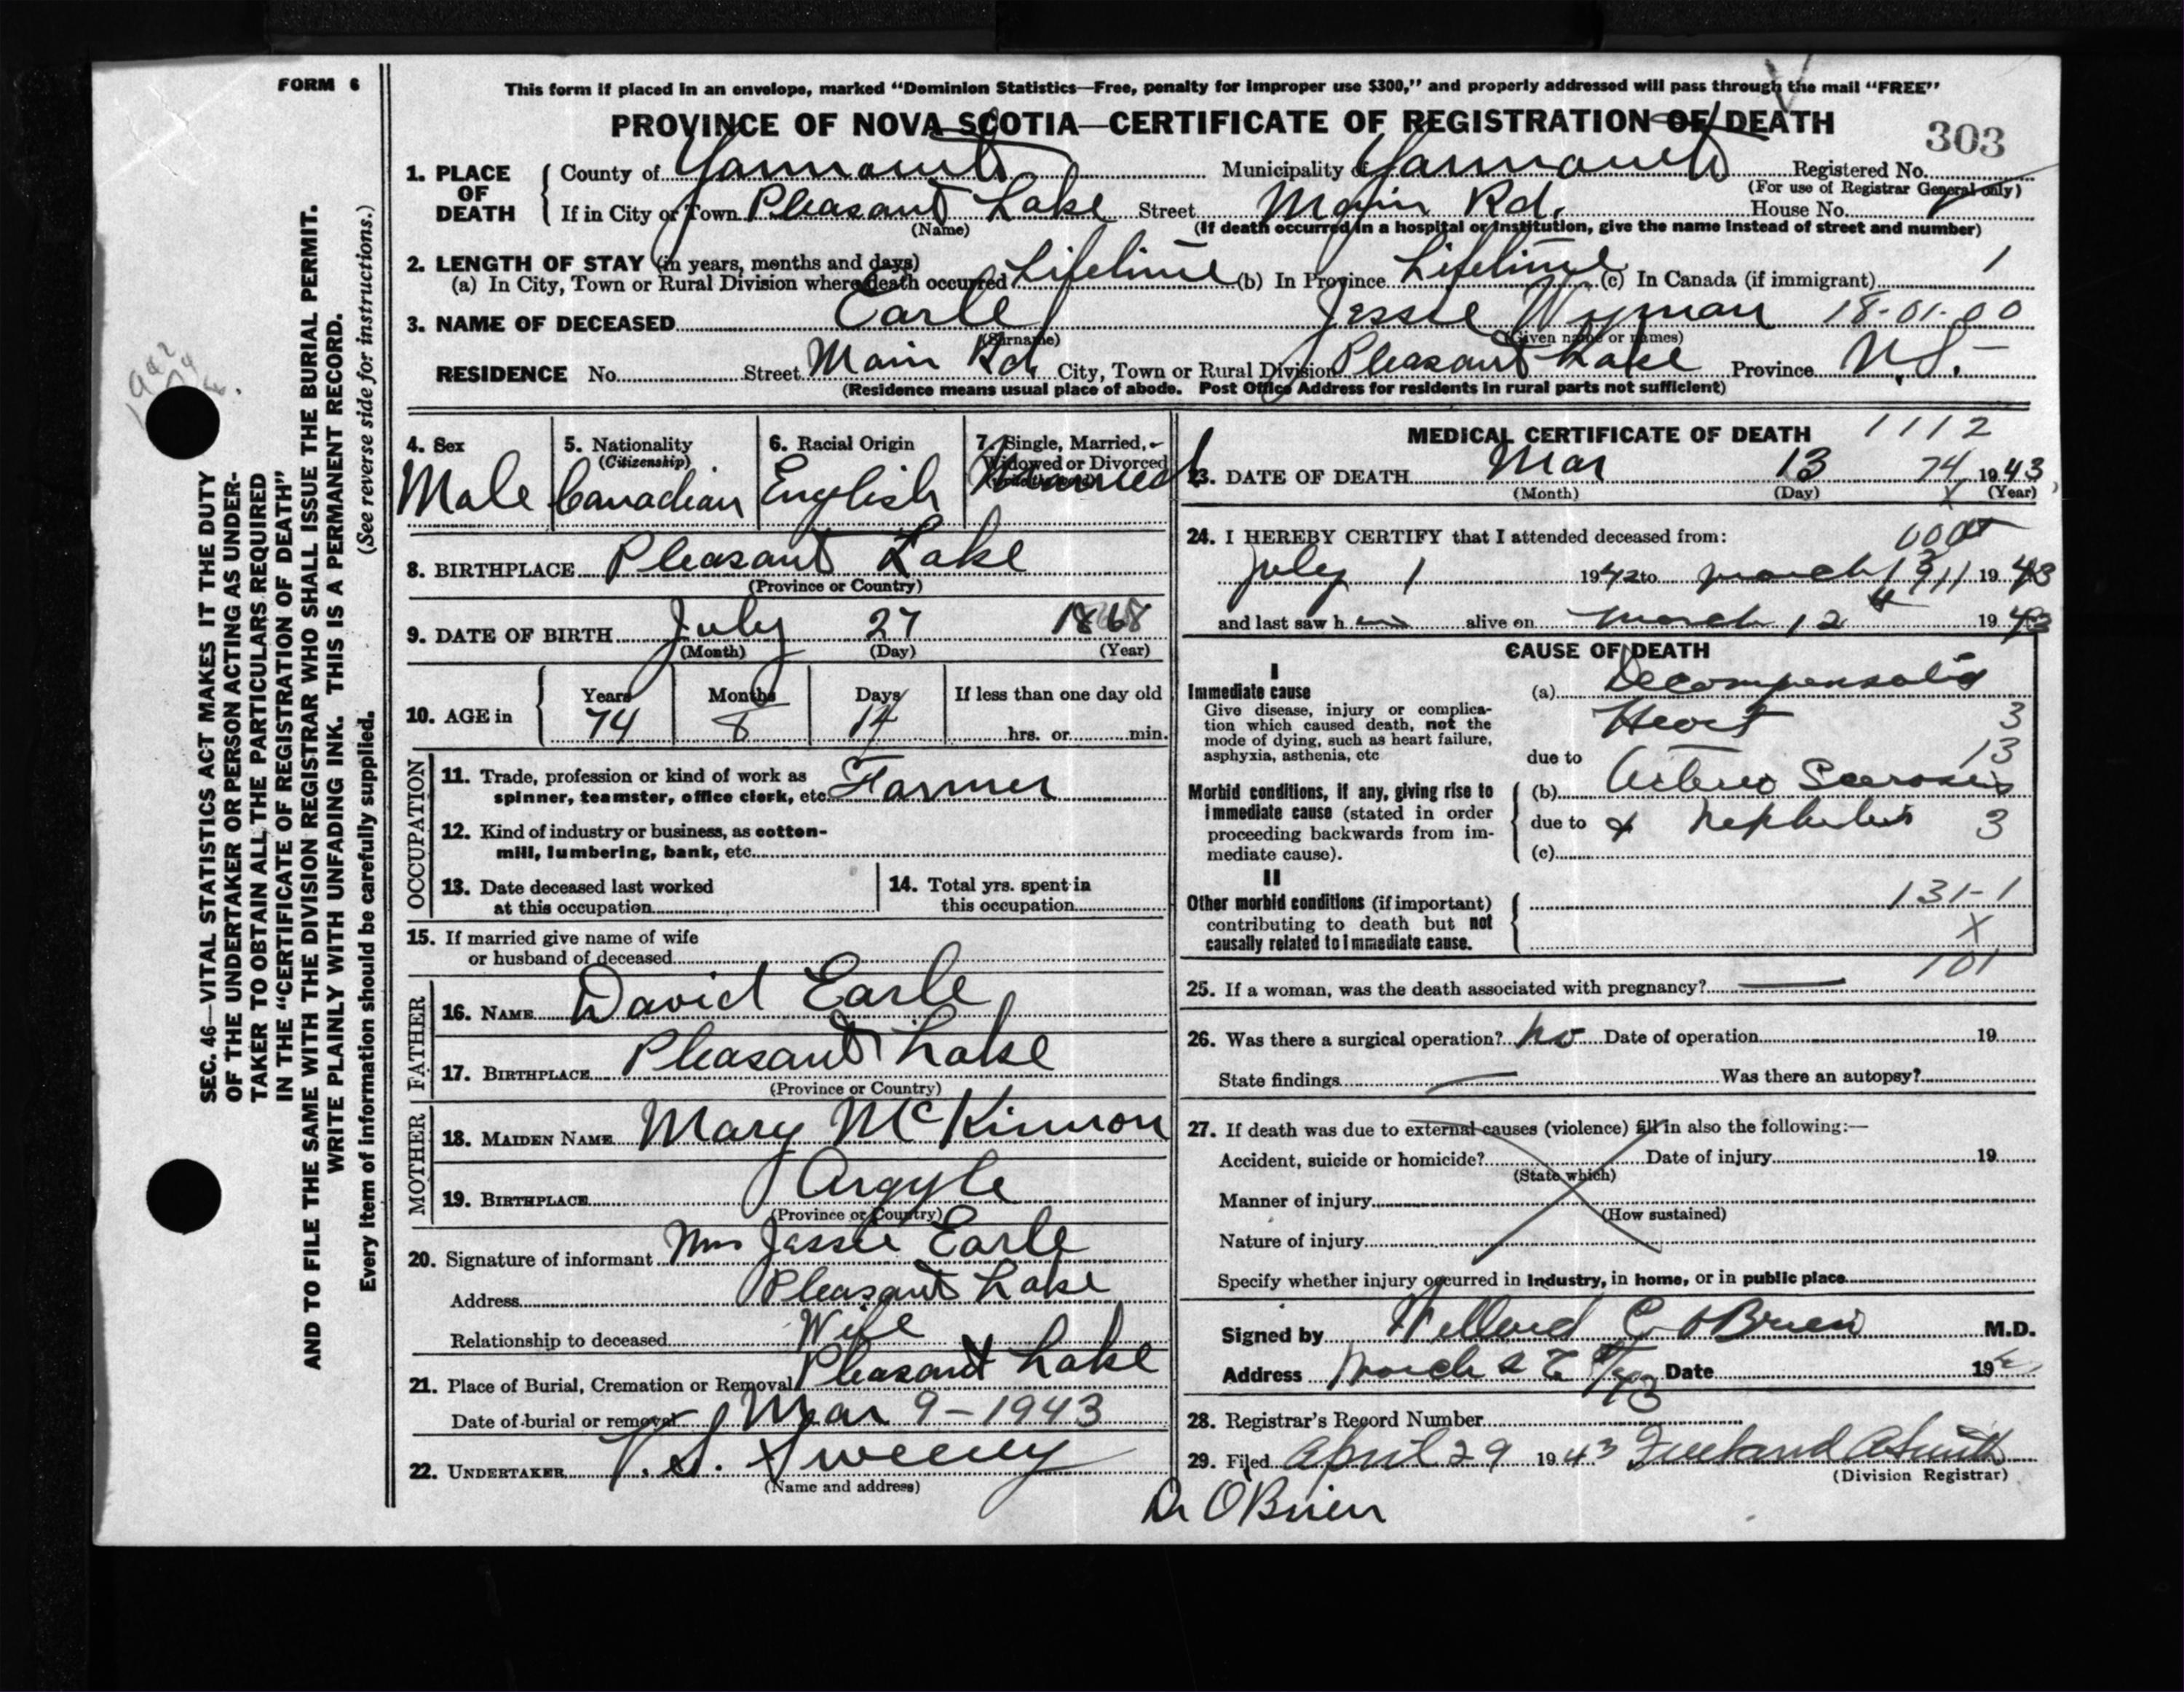 FORM 6
This form if placed in an envelope, marked "Dominion Statistics—Free, penalty for improper use $300," and properly addressed will pass through the mail "FREE"
PROVINCE OF NOVA SCOTIA—CERTIFICATE OF REGISTRATION OF DEATH
303
1. PLACE OF DEATH County of Yarmouth Municipality of Yarmouth Registered No.
(For use of Registrar General only)
If in City or Town Pleasant Lake Street Main Rd. House No.
(Name) (If death occurred in a hospital or institution, give the name instead of street and number)
2. LENGTH OF STAY (in years, months and days) 1
(a) In City, Town or Rural Division where death occurred Lifetime (b) In Province Lifetime (c) In Canada (if immigrant)
3. NAME OF DECEASED Earle Jessie Wyman 18-01-00
(Surname) (Given name or names)
RESIDENCE No. Street Main Rd. City, Town or Rural Division Pleasant Lake Province N.S.
(Residence means usual place of abode. Post Office Address for residents in rural parts not sufficient)
4. Sex 5. Nationality 6. Racial Origin 7. Single, Married,
(Citizenship) Widowed or Divorced
Male Canadian English Married
8. BIRTHPLACE Pleasant Lake
(Province or Country)
9. DATE OF BIRTH July 27 1868
(Month) (Day) (Year)
10. AGE in Years Months Days If less than one day old
74 8 14 hrs. or min.
OCCUPATION
11. Trade, profession or kind of work as Farmer
spinner, teamster, office clerk, etc.
12. Kind of industry or business, as cotton-
mill, lumbering, bank, etc.
13. Date deceased last worked 14. Total yrs. spent in
at this occupation this occupation
15. If married give name of wife
or husband of deceased
FATHER
16. NAME David Earle
17. BIRTHPLACE Pleasant Lake
(Province or Country)
MOTHER
18. MAIDEN NAME Mary McKinnon
19. BIRTHPLACE Argyle
(Province or Country)
20. Signature of informant Mrs Jessie Earle
Address Pleasant Lake
Relationship to deceased Wife
21. Place of Burial, Cremation or Removal Pleasant Lake
Date of burial or removal Mar 9-1943
22. UNDERTAKER V. S. Sweeny
(Name and address)
MEDICAL CERTIFICATE OF DEATH 1112
23. DATE OF DEATH Mar 13 74 1943
(Month) (Day) X (Year)
24. I HEREBY CERTIFY that I attended deceased from:
July 1 1942 to March 1943
and last saw h im alive on March 12 1943
CAUSE OF DEATH
I
Immediate cause (a) Decompensatio
Give disease, injury or complica- Heart 3
tion which caused death, not the
mode of dying, such as heart failure, 13
asphyxia, asthenia, etc due to
Morbid conditions, if any, giving rise to (b) Arterio Scerosis
immediate cause (stated in order due to & Nephritis 3
proceeding backwards from im-
mediate cause). (c)
II
Other morbid conditions (if important) 131-1
contributing to death but not X
causally related to immediate cause.
101
25. If a woman, was the death associated with pregnancy?
26. Was there a surgical operation? No Date of operation 19
State findings Was there an autopsy?
27. If death was due to external causes (violence) fill in also the following:—
Accident, suicide or homicide? Date of injury 19
(State which)
Manner of injury
(How sustained)
Nature of injury
Specify whether injury occurred in industry, in home, or in public place
Signed by Willard C O'Brien M.D.
Address Date 19
28. Registrar's Record Number
29. Filed April 29 1943 Freeland A Smith
(Division Registrar)
Dr O'Brien
SEC. 46—VITAL STATISTICS ACT MAKES IT THE DUTY
OF THE UNDERTAKER OR PERSON ACTING AS UNDER-
TAKER TO OBTAIN ALL THE PARTICULARS REQUIRED
IN THE "CERTIFICATE OF REGISTRATION OF DEATH"
AND TO FILE THE SAME WITH THE DIVISION REGISTRAR WHO SHALL ISSUE THE BURIAL PERMIT.
WRITE PLAINLY WITH UNFADING INK. THIS IS A PERMANENT RECORD.
Every item of information should be carefully supplied. (See reverse side for instructions.)